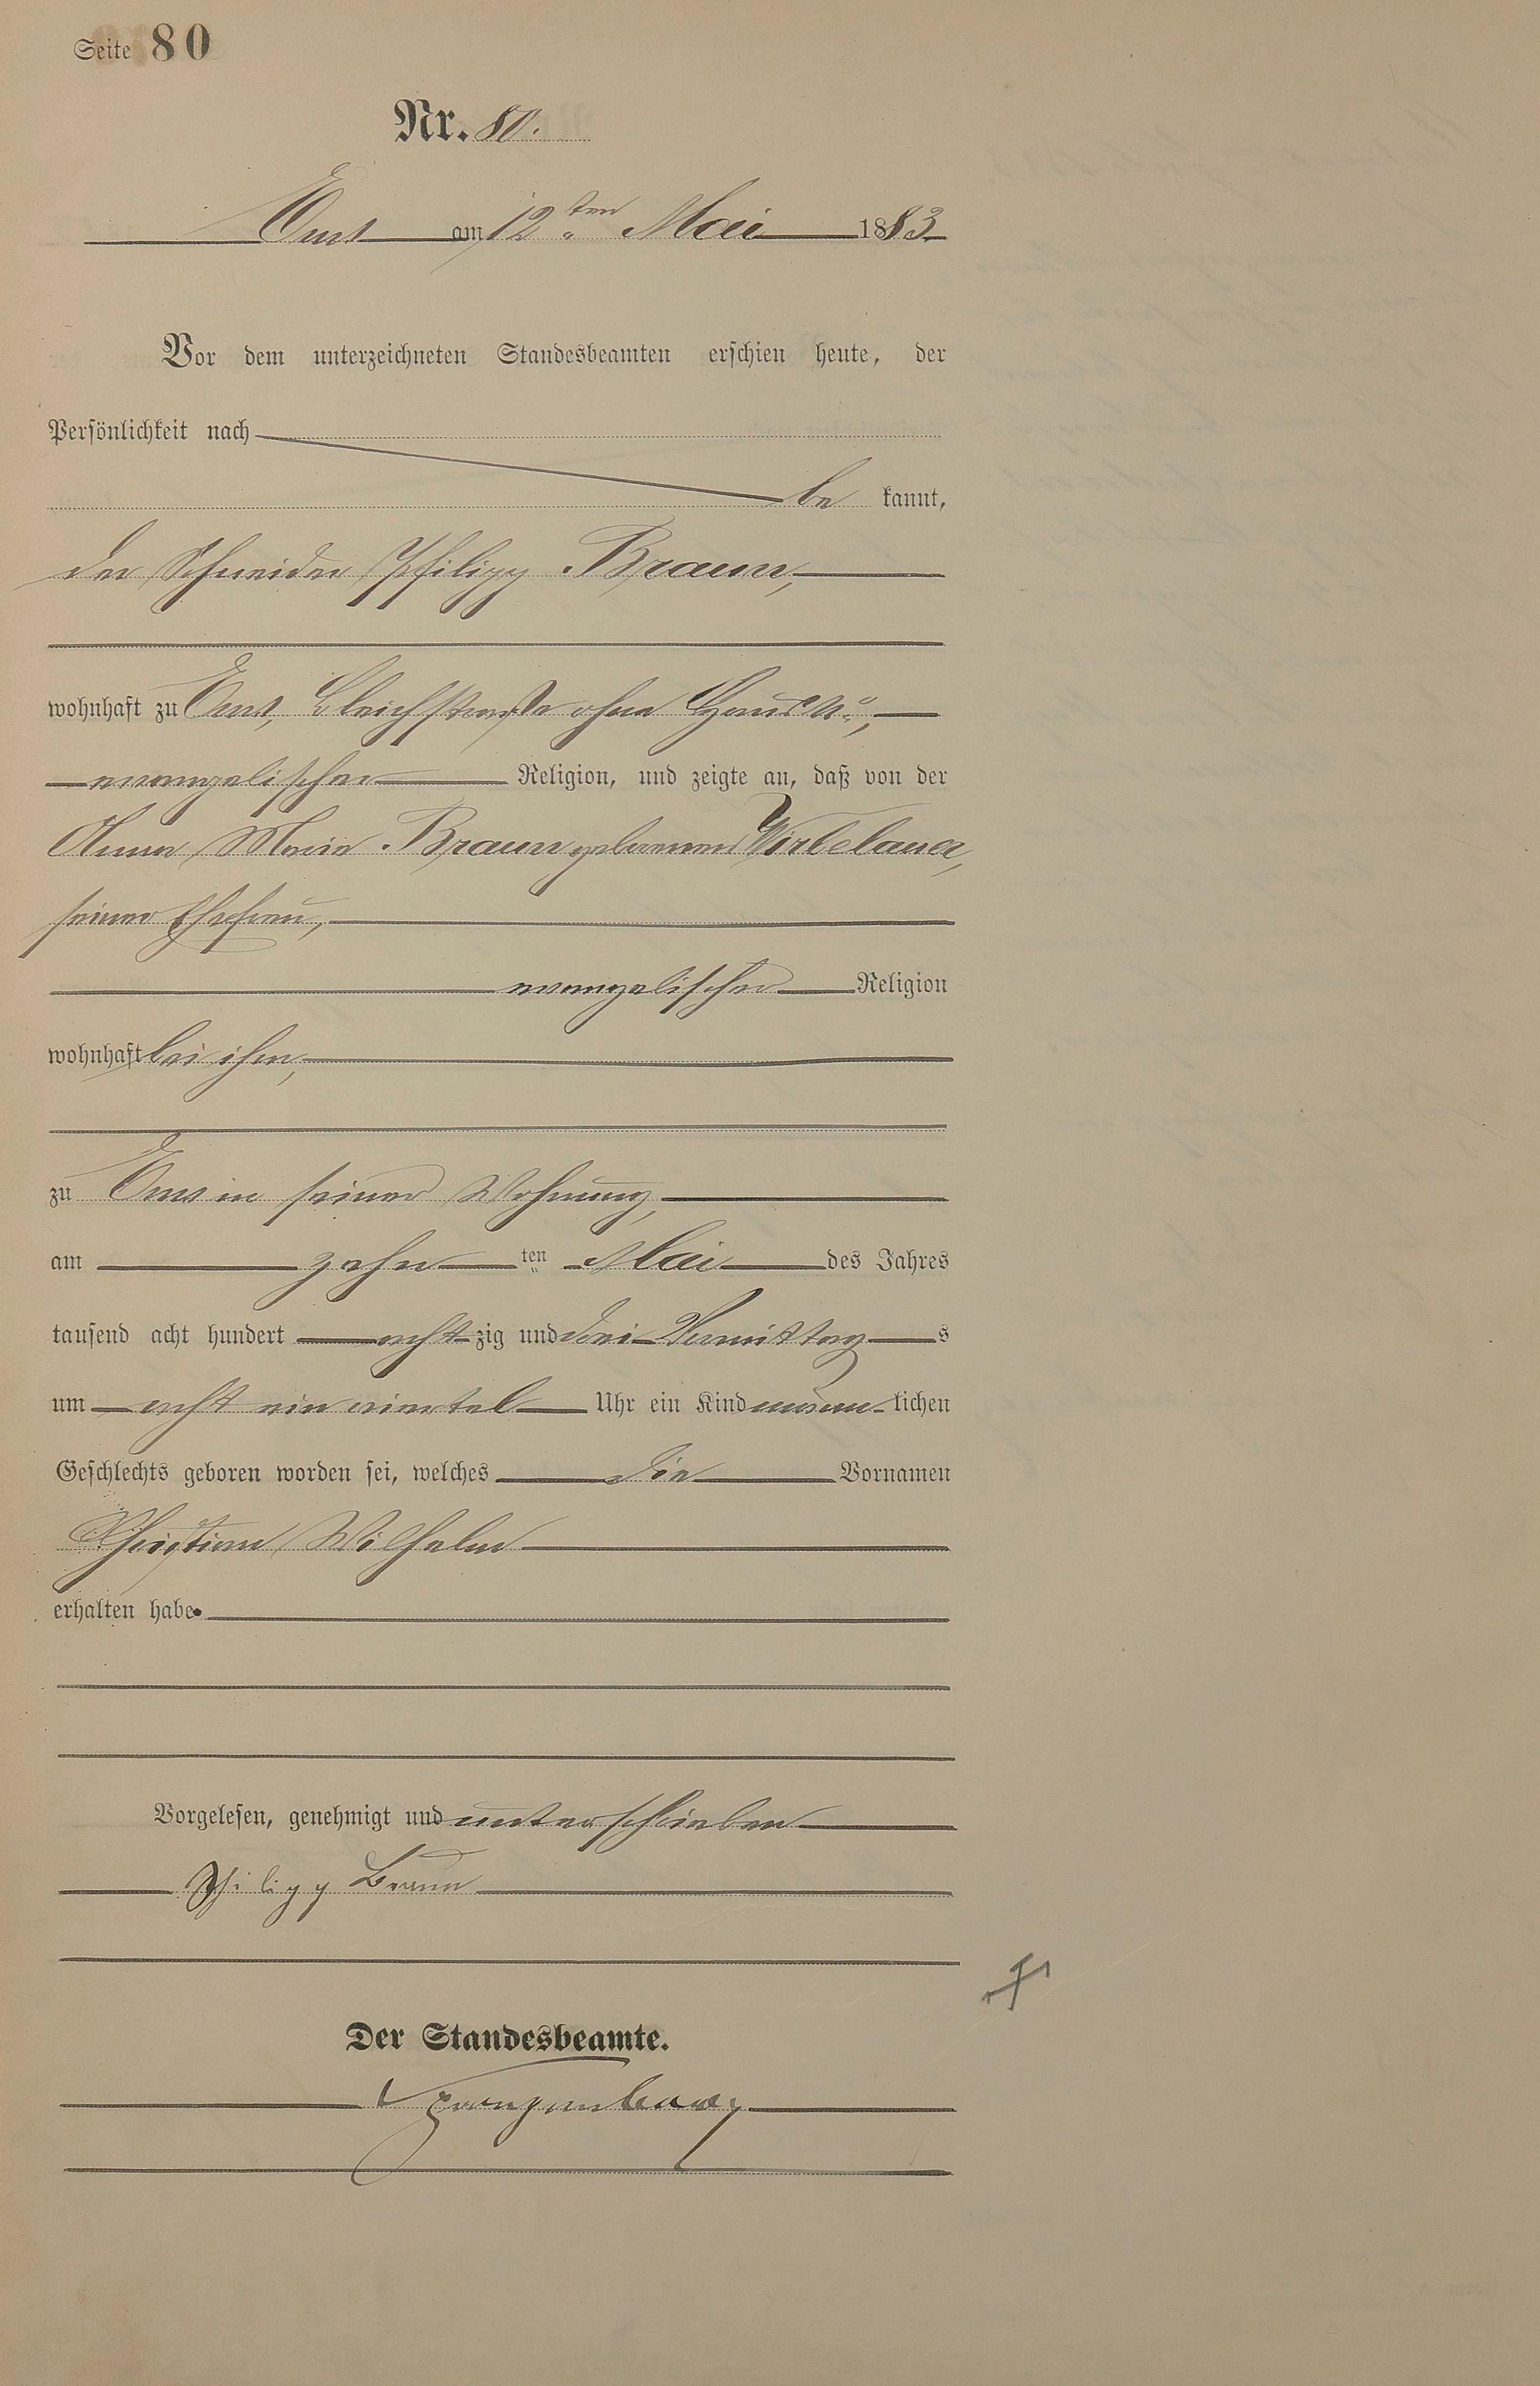 Seite 80
Nr. 80.
Ems am 12ten Mai 1883
Vor dem unterzeichneten Standesbeamten erschien heute, der
Persönlichkeit nach
be kannt,
der Schneider Philipp Braun,
wohnhaft zu Ems, Bleichstraße ohne Haus No.,
evangelischer Religion, und zeigte an, daß von der
Anna Maria Braun geborenen Wirbelauer,
seiner Ehefrau,
evangelischer Religion
wohnhaft bei ihm,
zu Ems in seiner Wohnung,
am zehn ten Mai des Jahres
tausend acht hundert acht zig und drei Vormittag s
um acht ein viertel Uhr ein Kind männ lichen
Geschlechts geboren worden sei, welches die Vornamen
Christian Wilhelm
erhalten habe.
Vorgelesen, genehmigt und unterschrieben
Philipp Braun
Der Standesbeamte.